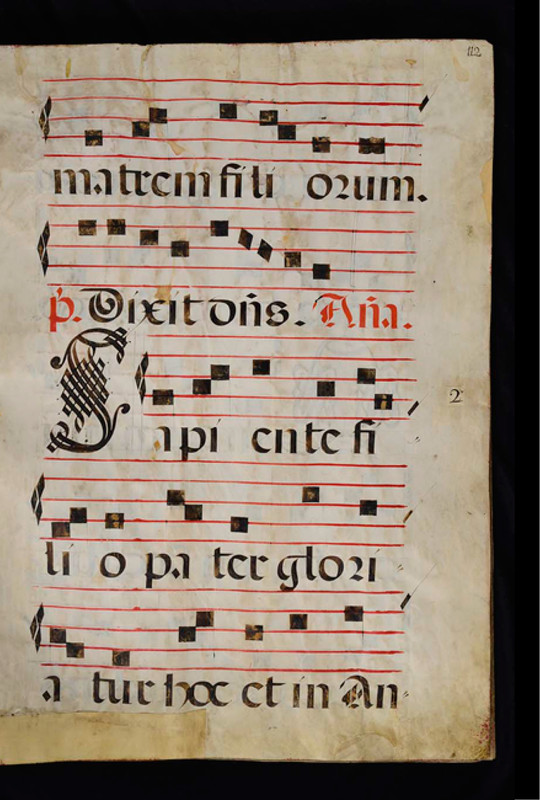 112
matrem fili orum.
p̄. Dixit dn̄s. An̄a.
Sapi ente fi
2
li o pa ter glori
a tur hoc et in An